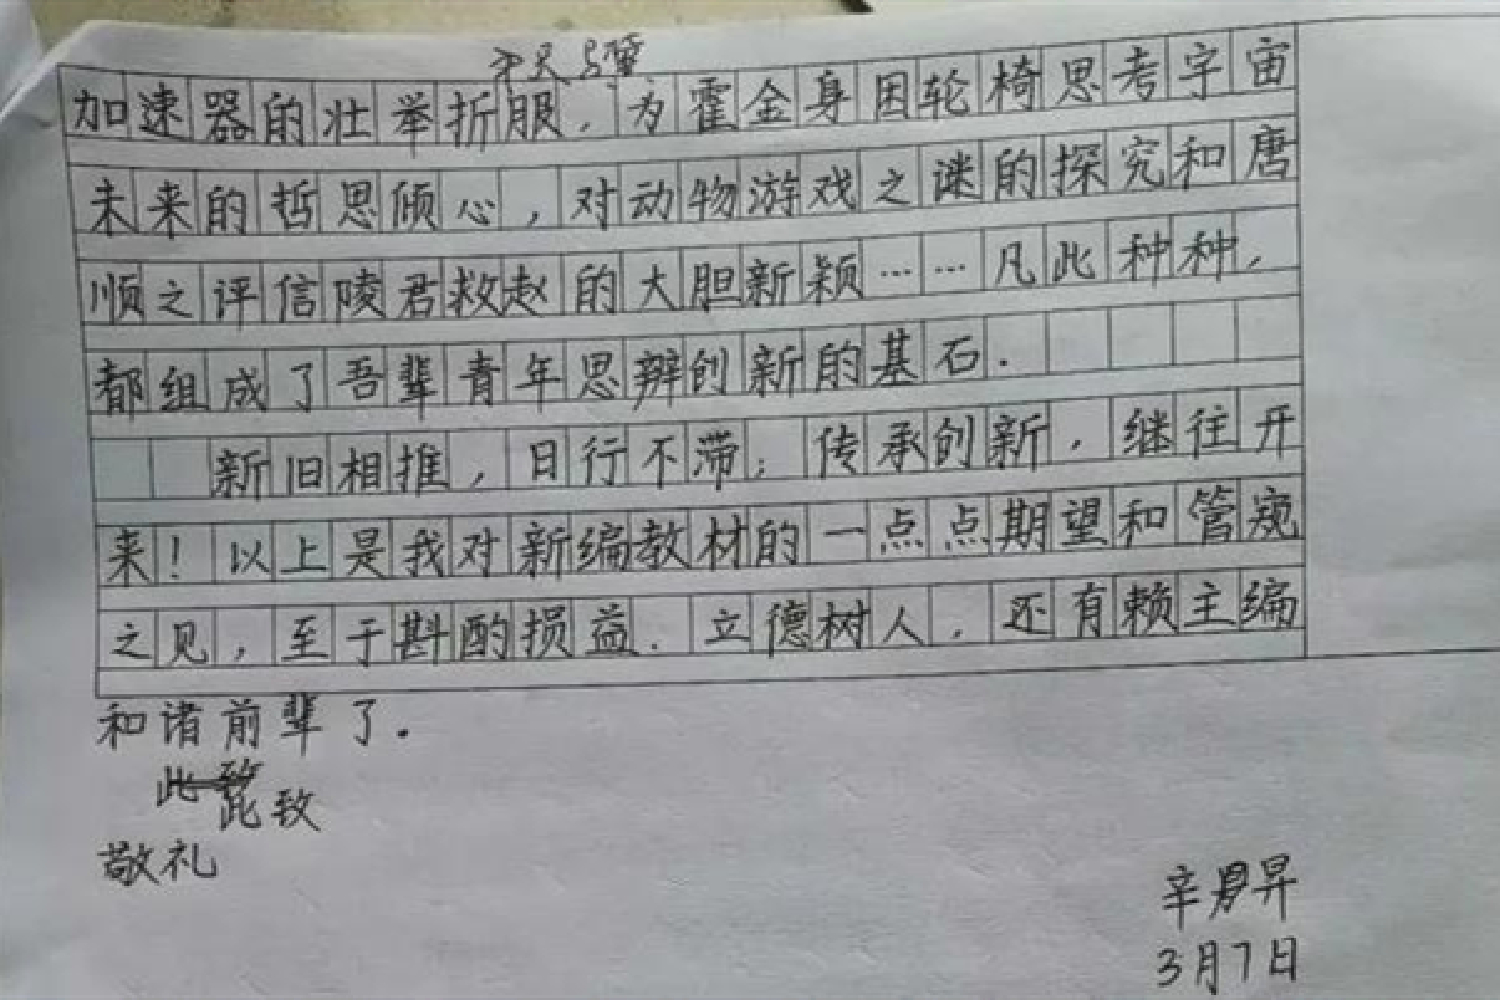 加速器的壮举折服，为霍金身困轮椅思考宇宙
未来的哲思倾心，对动物游戏之谜的探究和唐
顺之评信陵君救赵的大胆新颖……凡此种种，
都组成了吾辈青年思辨创新的基石.
新旧相推，日行不滞；传承创新，继往开
来！以上是我对新编教材的一点点期望和管窥
之见，至于斟酌损益.立德树人，还有赖主编
和诸前辈了.
此致
此致
敬礼
3月7日